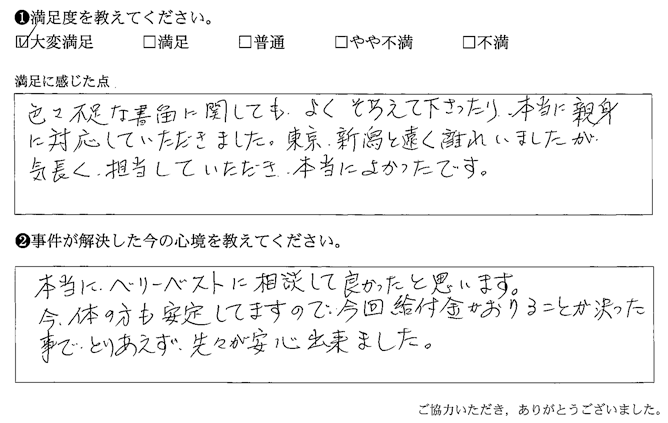 ❶満足度を教えてください。
☑大変満足 □満足 □普通 □やや不満 □不満
満足に感じた点
色々不足な書面に関しても、よくそろえて下さったり、本当に親身
に対応していただきました。東京、新潟と遠く離れいましたが、
気長く、担当していただき、本当によかったです。
❷事件が解決した今の心境を教えてください。
本当に、ベリーベストに相談して良かったと思います。
今、体の方も安定してますので、今回給付金がおりることが決った
事で、とりあえず、先々が安心出来ました。
ご協力いただき，ありがとうございました。